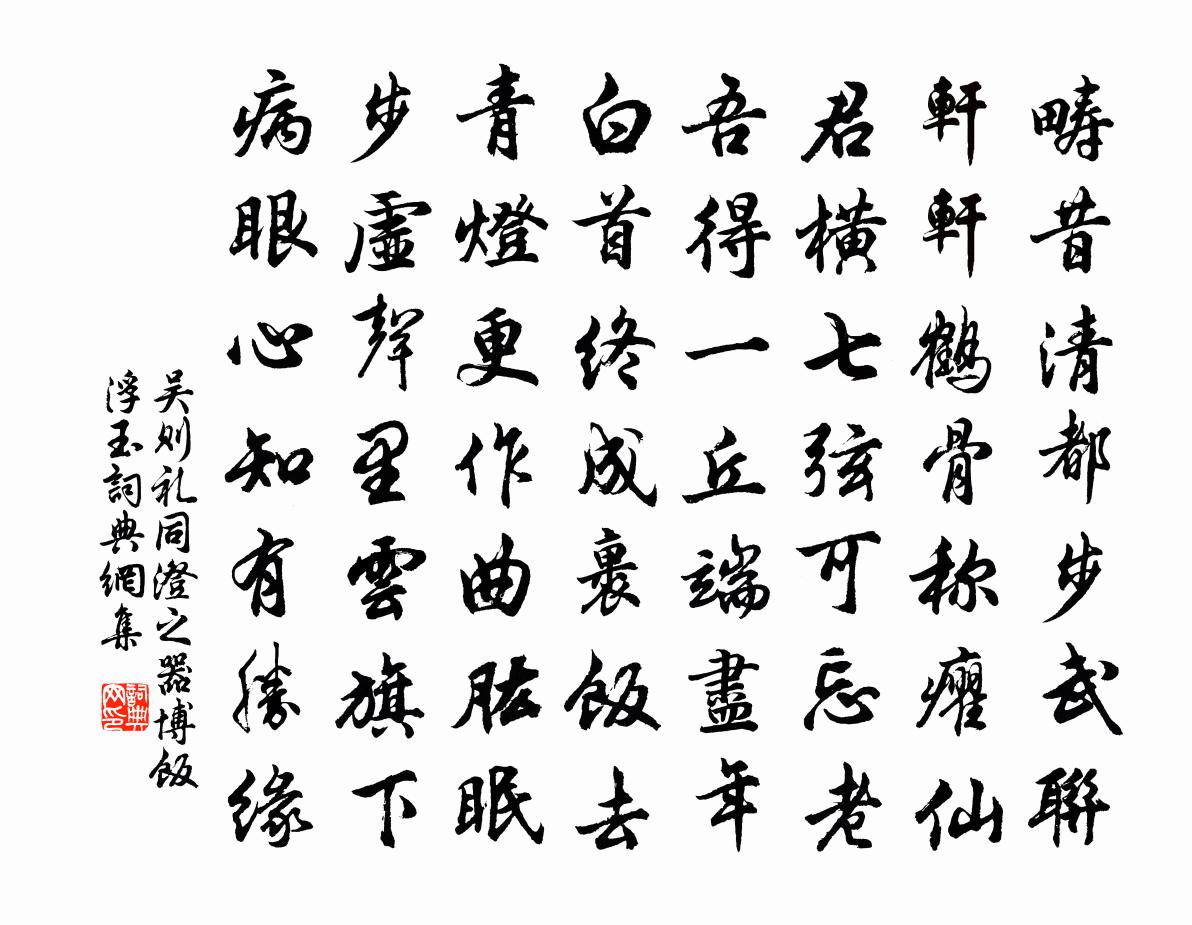 畴昔清都步武聯
軒軒鶴骨称癯仙
君橫七弦可忘老
吾得一丘端盡年
白首终成裹飯去
青燈更作曲肱眠
步虛聲里雲旗下
病眼心知有勝緣
吴则礼同澄之器博飯
浮玉詞典網集
詞典网印